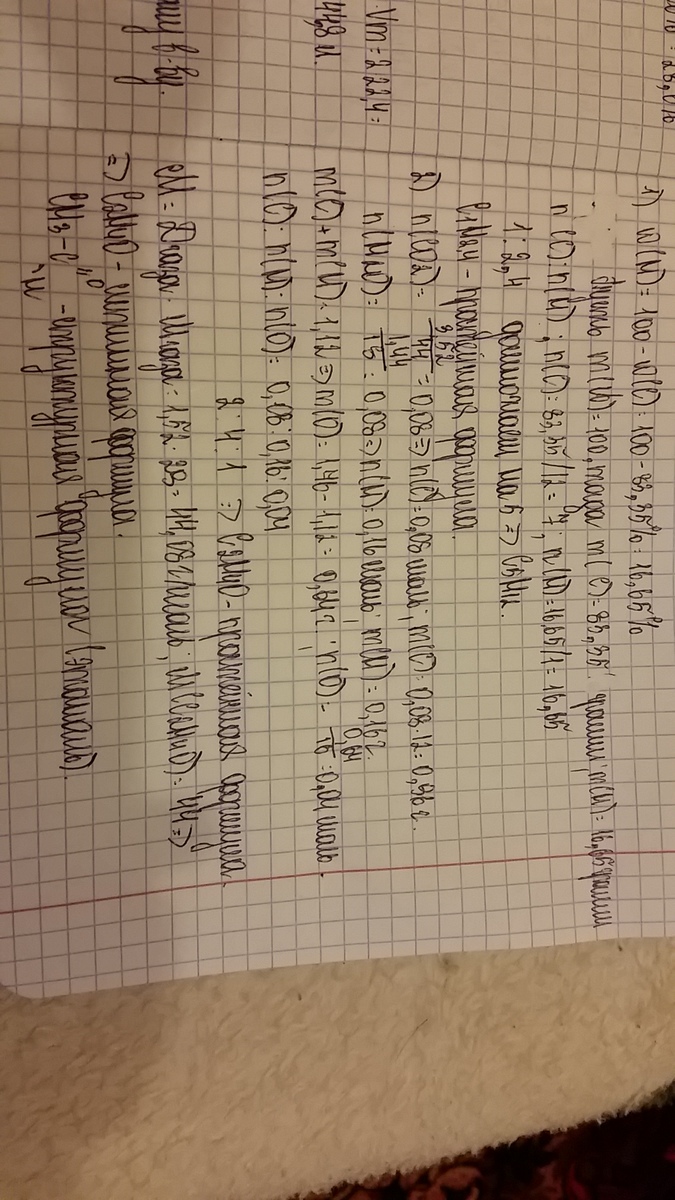 ω(H) = 100 - ω(C) = 100 - 83,35% = 16,65%
Vm = 2·22,4 =
44,8 л.
1) ω(H) = 100 - ω(C) = 100 - 83,35% = 16,65%
m( ) = 100, тогда m(C) = 83,35 грамм; m(H) = 16,65 грамм
n(C) : n(H) ; n(C) = 83,35/12 = 7; n(H) = 16,65/1 = 16,65
1 : 2,4 домножаем на 5 => C5H12.
- простейшая формула.
2) n(CO2) = 3,52/44 = 0,08 => n(C) = 0,08 моль; m(C) = 0,08·12 = 0,96 г.
n(H2O) = 1,44/18 = 0,08 => n(H) = 0,16 моль; m(H) = 0,16 г.
m(C) + m(H) = 1,12 => m(O) = 1,76 - 1,12 = 0,64 г.; n(O) = 0,64/16 = 0,04 моль.
n(C) : n(H) : n(O) = 0,08 : 0,16 : 0,04
2 : 4 : 1 => C2H4O - простейшая формула.
M = Dгаза · Mгаза = 1,52 · 29 = 44,08 г/моль; M(C2H4O) = 44 =>
=> C2H4O - истинная формула.
CH3-C =O H - структурная формула (этаналь).